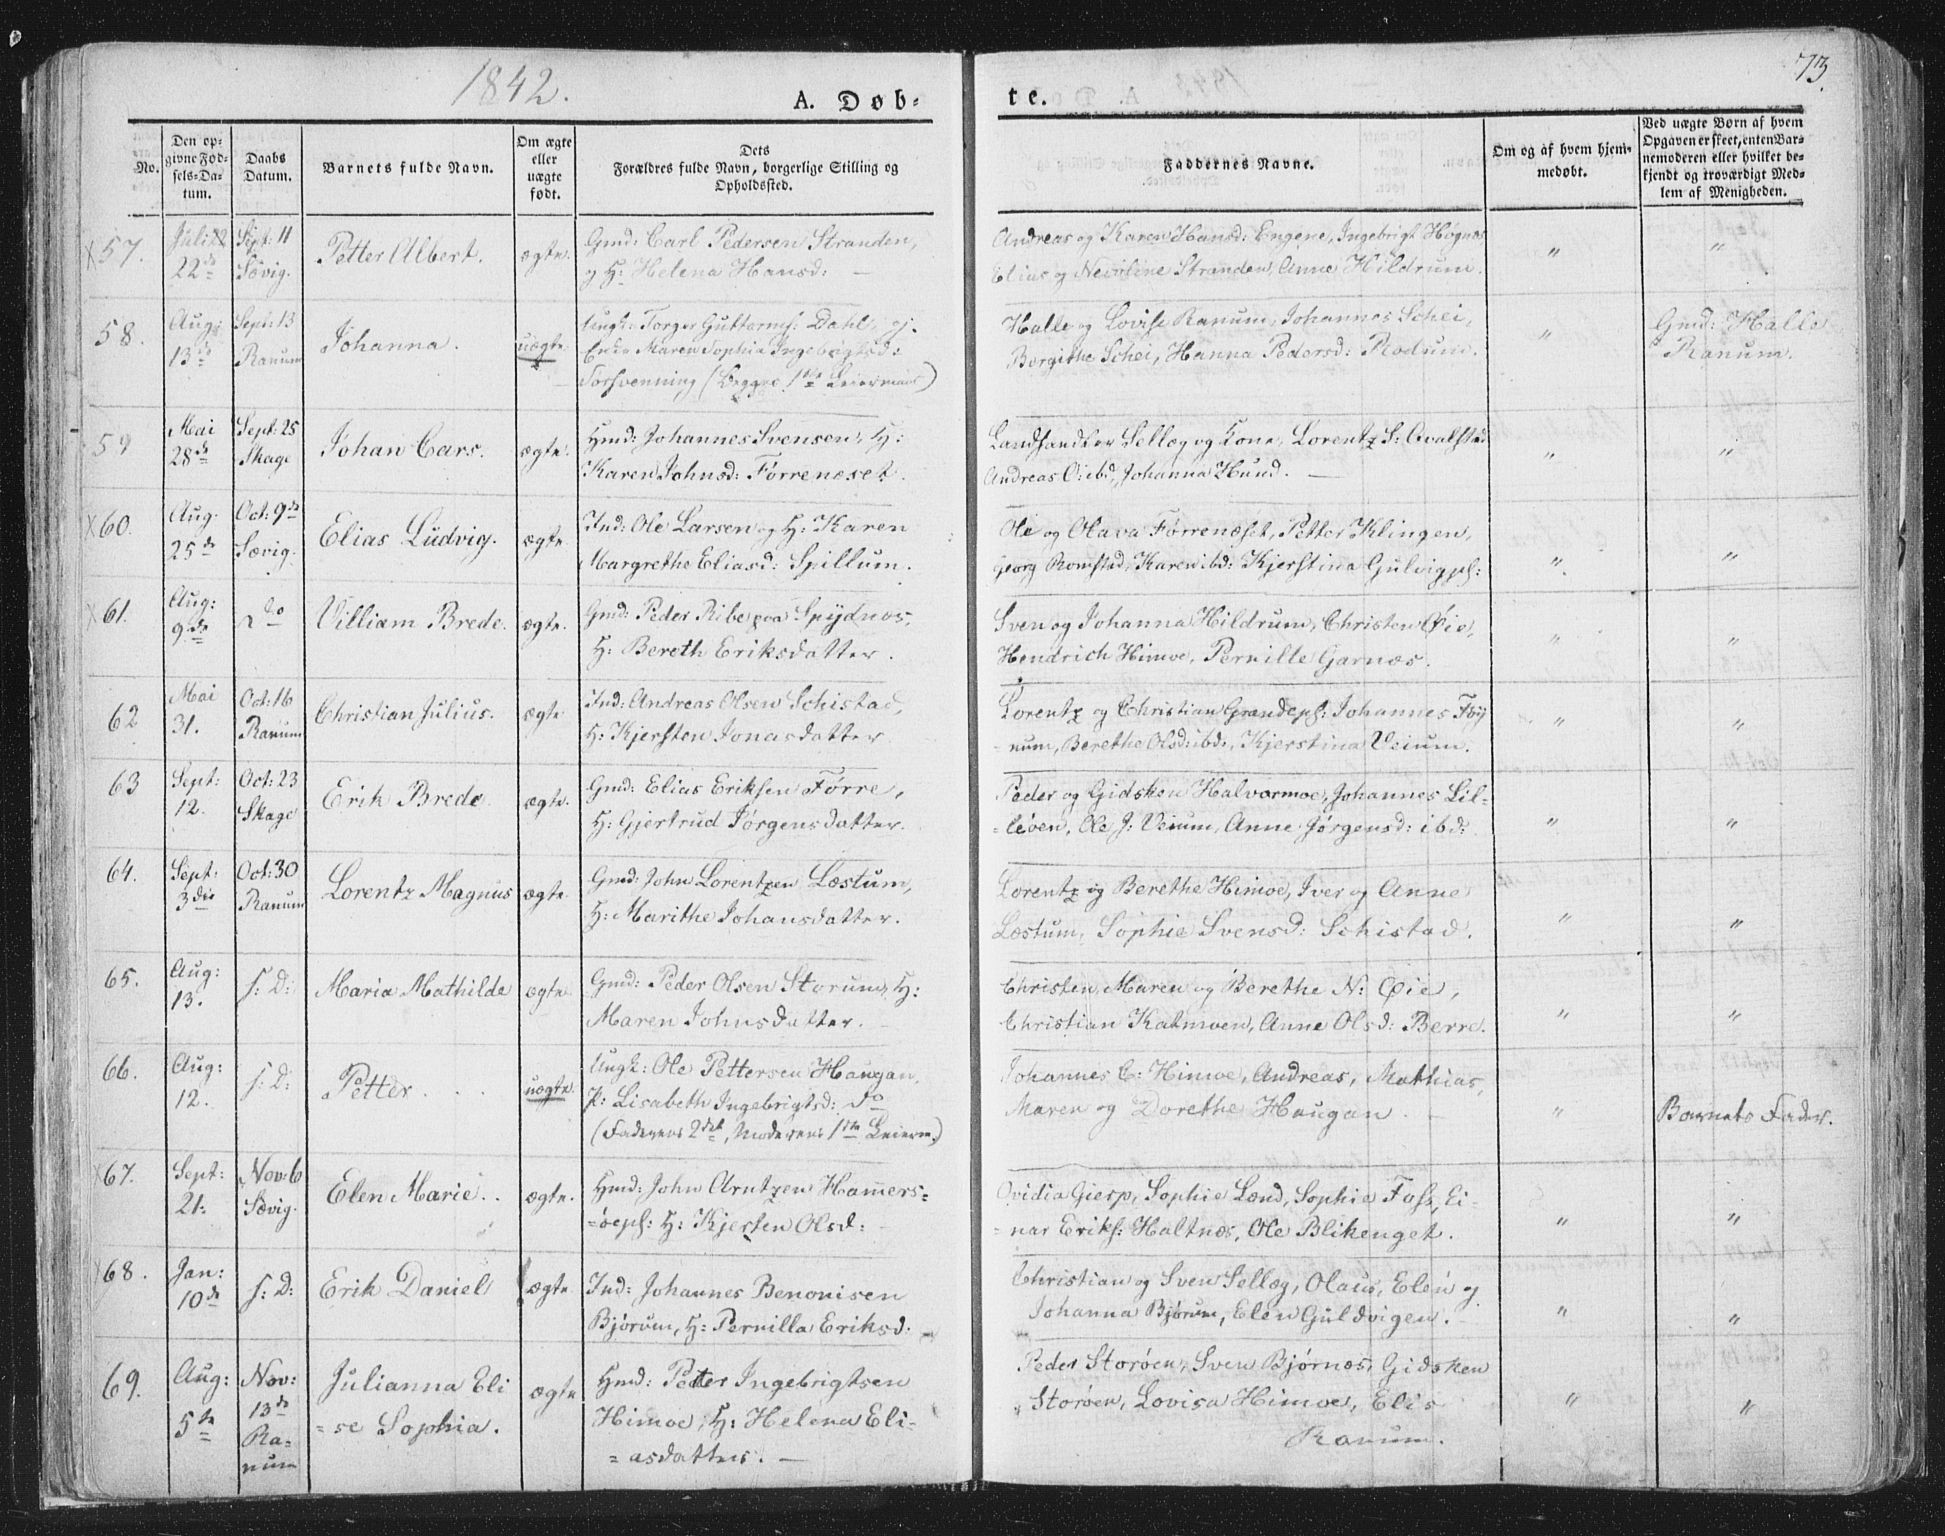 1842.
A. Døb-
te.
73.
No.
Den op-
givne Fød-
sels-Da-
tum.
Daabs
Datum.
Barnets fulde Navn.
Om ægte
eller
uægte
født.
Dets
Forældres fulde Navn, borgerlige Stilling og
Opholdssted.
Faddernes Navne.
Om og af hvem hjem-
medøbt.
Ved uægte Børn af hvem
Opgaven er skeet, enten Bar-
nemoderen eller hvilket be-
kjendt og troværdigt Med-
lem af Menigheden.
57.
Juli
22de
Sept: 11
Søvig.
Petter Albert.
ægte.
Gmd: Carl Pedersen Stranden,
og H: Helena Hansd: —
Andreas og Karen Hansd: Engene, Ingebrigt Hognæs
Elias og Nicoline Stranden, Anne Hildrum.
"
"
58.
Aug:
13de
Sept: 13
Ranum
Johanna.
uægte
Ungk: Torger Guttorms: Dahl, og
Enke Maren Sophia Ingebrigtsd:
(Begges 1ste Leiermaal)
Halle og Lovise Ranum, Johannes Schei,
Borgithe Schei, Hanna Pedersd: Rodum.
"
Gmd: Halle
Ranum.
59
Mai
28de
Sept: 25
Skage
Johan Cars.
ægte.
Hmd: Johannes Svensen, H:
Karen Johnsd: Førreneset.
Landhandler Sellæg og Kone, Lorentz S: Qvalstad
Andreas O: ibd, Johanna Hund. —
"
"
60.
Aug.
25de
Oct: 9de
Sævig.
Elias Ludvig.
ægte
Ind: Ole Larsen og H: Karen
Margrethe Eliasd: Spillum.
Ole og Olava Førrenæset, Petter Klingen,
Georg Romstad, Karen ibd: Kjerstina Gulvig pl:
"
"
61.
Aug:
9de
do
Villiam Brede.
ægte.
Gmd: Peder Ribe paa Spydnæs,
H: Bereth Eriksdatter.
Sven og Johanna Hildrum, Christen Øie,
Hendrich Himoe, Pernille Garnæs.
"
"
62
Mai
31.
Oct: 16
Ranum
Christian Julius.
ægte
Ind: Andreas Olsen Schistad,
H: Kjersten Jonasdatter
Lorentz og Christian Grandepl: Johannes Føy
num, Berethe Olsd: ibd:, Kjerstina Veium.
"
"
63
Sept:
12.
Oct: 23
Skage
Erik Brede
ægte.
Gmd: Elias Eriksen Førre,
H: Gjertrud Jørgensdatter.
Peder og Gidsken Halvarmoe, Johannes Lil-
=leøen, Ole J: Veium, Anne Jørgensd: ibd:
"
"
64.
Sept:
3die
Oct: 30
Ranum
Lorentz Magnus
ægte
Gmd: John Lorentzen Læstum,
H: Marithe Johansdatter.
Lorentz og Berethe Himoe, Iver og Anne
Læstum, Sophie Svensd: Schistad.
"
"
65.
Aug:
13.
s: D:
Maria Mathilde
ægte
Gmd: Peder Olsen Storum, H:
Maren Johnsdatter.
Christen, Maren og Berethe N: Øie,
Christian Kalmoen, Anne Olsd: Berre.
"
"
66.
Aug:
12.
s: D:
Petter
uægte.
Ungk: Ole Pettersen Haugan,
p: Lisabeth Ingebrigtsd: do
(Faderens 2det, Moderens 1ste Leierm.)
Johannes C: Himoe, Andreas, Mathias,
Maren og Dorethe Haugan.
"
Barnets Fader.
67.
Sept:
21:
Nov: 6
Sævig.
Elen Marie.
ægte.
Hmd: John Arntzen Hamers-
=øepl: H: Kjersten Olsd:
Ovidia Giersp, Sophie Lænd, Sophie Foss, Ei-
=nar Eriks: Haltnæs, Ole Blikenget.
"
"
68.
Jan:
10de
s: D:
Erik Daniel
ægte
Ind: Johannes Benonisen
Bjørum, H: Pernilla Eriksd:
Christian og Sven Sellæg, Olaus, Elen og
Johanna Bjørum, Elen Guldvigen.
"
"
69.
Aug:
5te
Nov:
13de
Ra-
num
Julianna Eli
=se Sophia.
ægte
Hmd: Peter Ingebrigtsen
Himoe, H: Helena Eli-
=asdatter. —
Peder Storøen, Sven Bjørnæs, Gidsken
Storøen, Lovisa Himoe, Elis
Ranum.
"
"